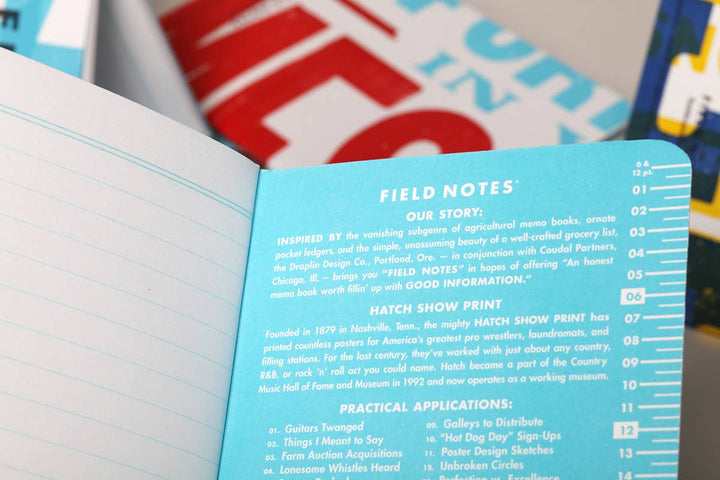 FIELD NOTES
OUR STORY:
INSPIRED BY the vanishing subgenre of agricultural memo books, ornate
pocket ledgers, and the simple, unassuming beauty of a well-crafted grocery list,
the Draplin Design Co., Portland, Ore. — in conjunction with Coudal Partners,
Chicago, Ill. — brings you "FIELD NOTES" in hopes of offering "An honest
memo book worth fillin' up with GOOD INFORMATION."
HATCH SHOW PRINT
Founded in 1879 in Nashville, Tenn., the mighty HATCH SHOW PRINT has
printed countless posters for America's greatest pro wrestlers, laundromats, and
filling stations. For the last century, they've worked with just about any country,
R&B, or rock 'n' roll act you could name. Hatch became a part of the Country
Music Hall of Fame and Museum in 1992 and now operates as a working museum.
PRACTICAL APPLICATIONS:
01. Guitars Twanged
02. Things I Meant to Say
03. Farm Auction Acquisitions
04. Lonesome Whistles Heard
09. Galleys to Distribute
10. "Hot Dog Day" Sign-Ups
11. Poster Design Sketches
12. Unbroken Circles
13. Perfection vs. Excellence
6 &
12 pt.
01
02
03
04
05
06
07
08
09
10
11
12
13
14
IN